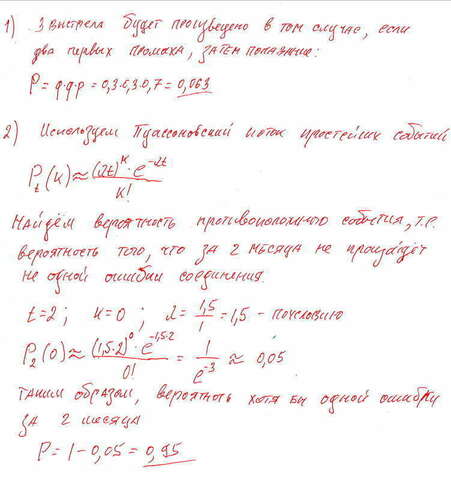 1) 3 выстрела будет произведено в том случае, если
два первых промаха, затем попадание:
P = q·q·p = 0,3·0,3·0,7 = 0,063
2) Используем Пуассоновский поток простейших событий
P_t(k) ≈ (λt)^k · e^(-λt) / k!
Найдём вероятность противоположного события, т.е.
вероятность того, что за 2 месяца не произойдёт
не одной ошибки соединения.
t = 2 ; k = 0 ; λ = 1,5/1 = 1,5 - по условию
P_2(0) ≈ (1,5·2)^0 · e^(-1,5·2) / 0! = 1/e^(-3) ≈ 0,05
Таким образом, вероятность хотя бы одной ошибки
за 2 месяца
P = 1 - 0,05 = 0,95